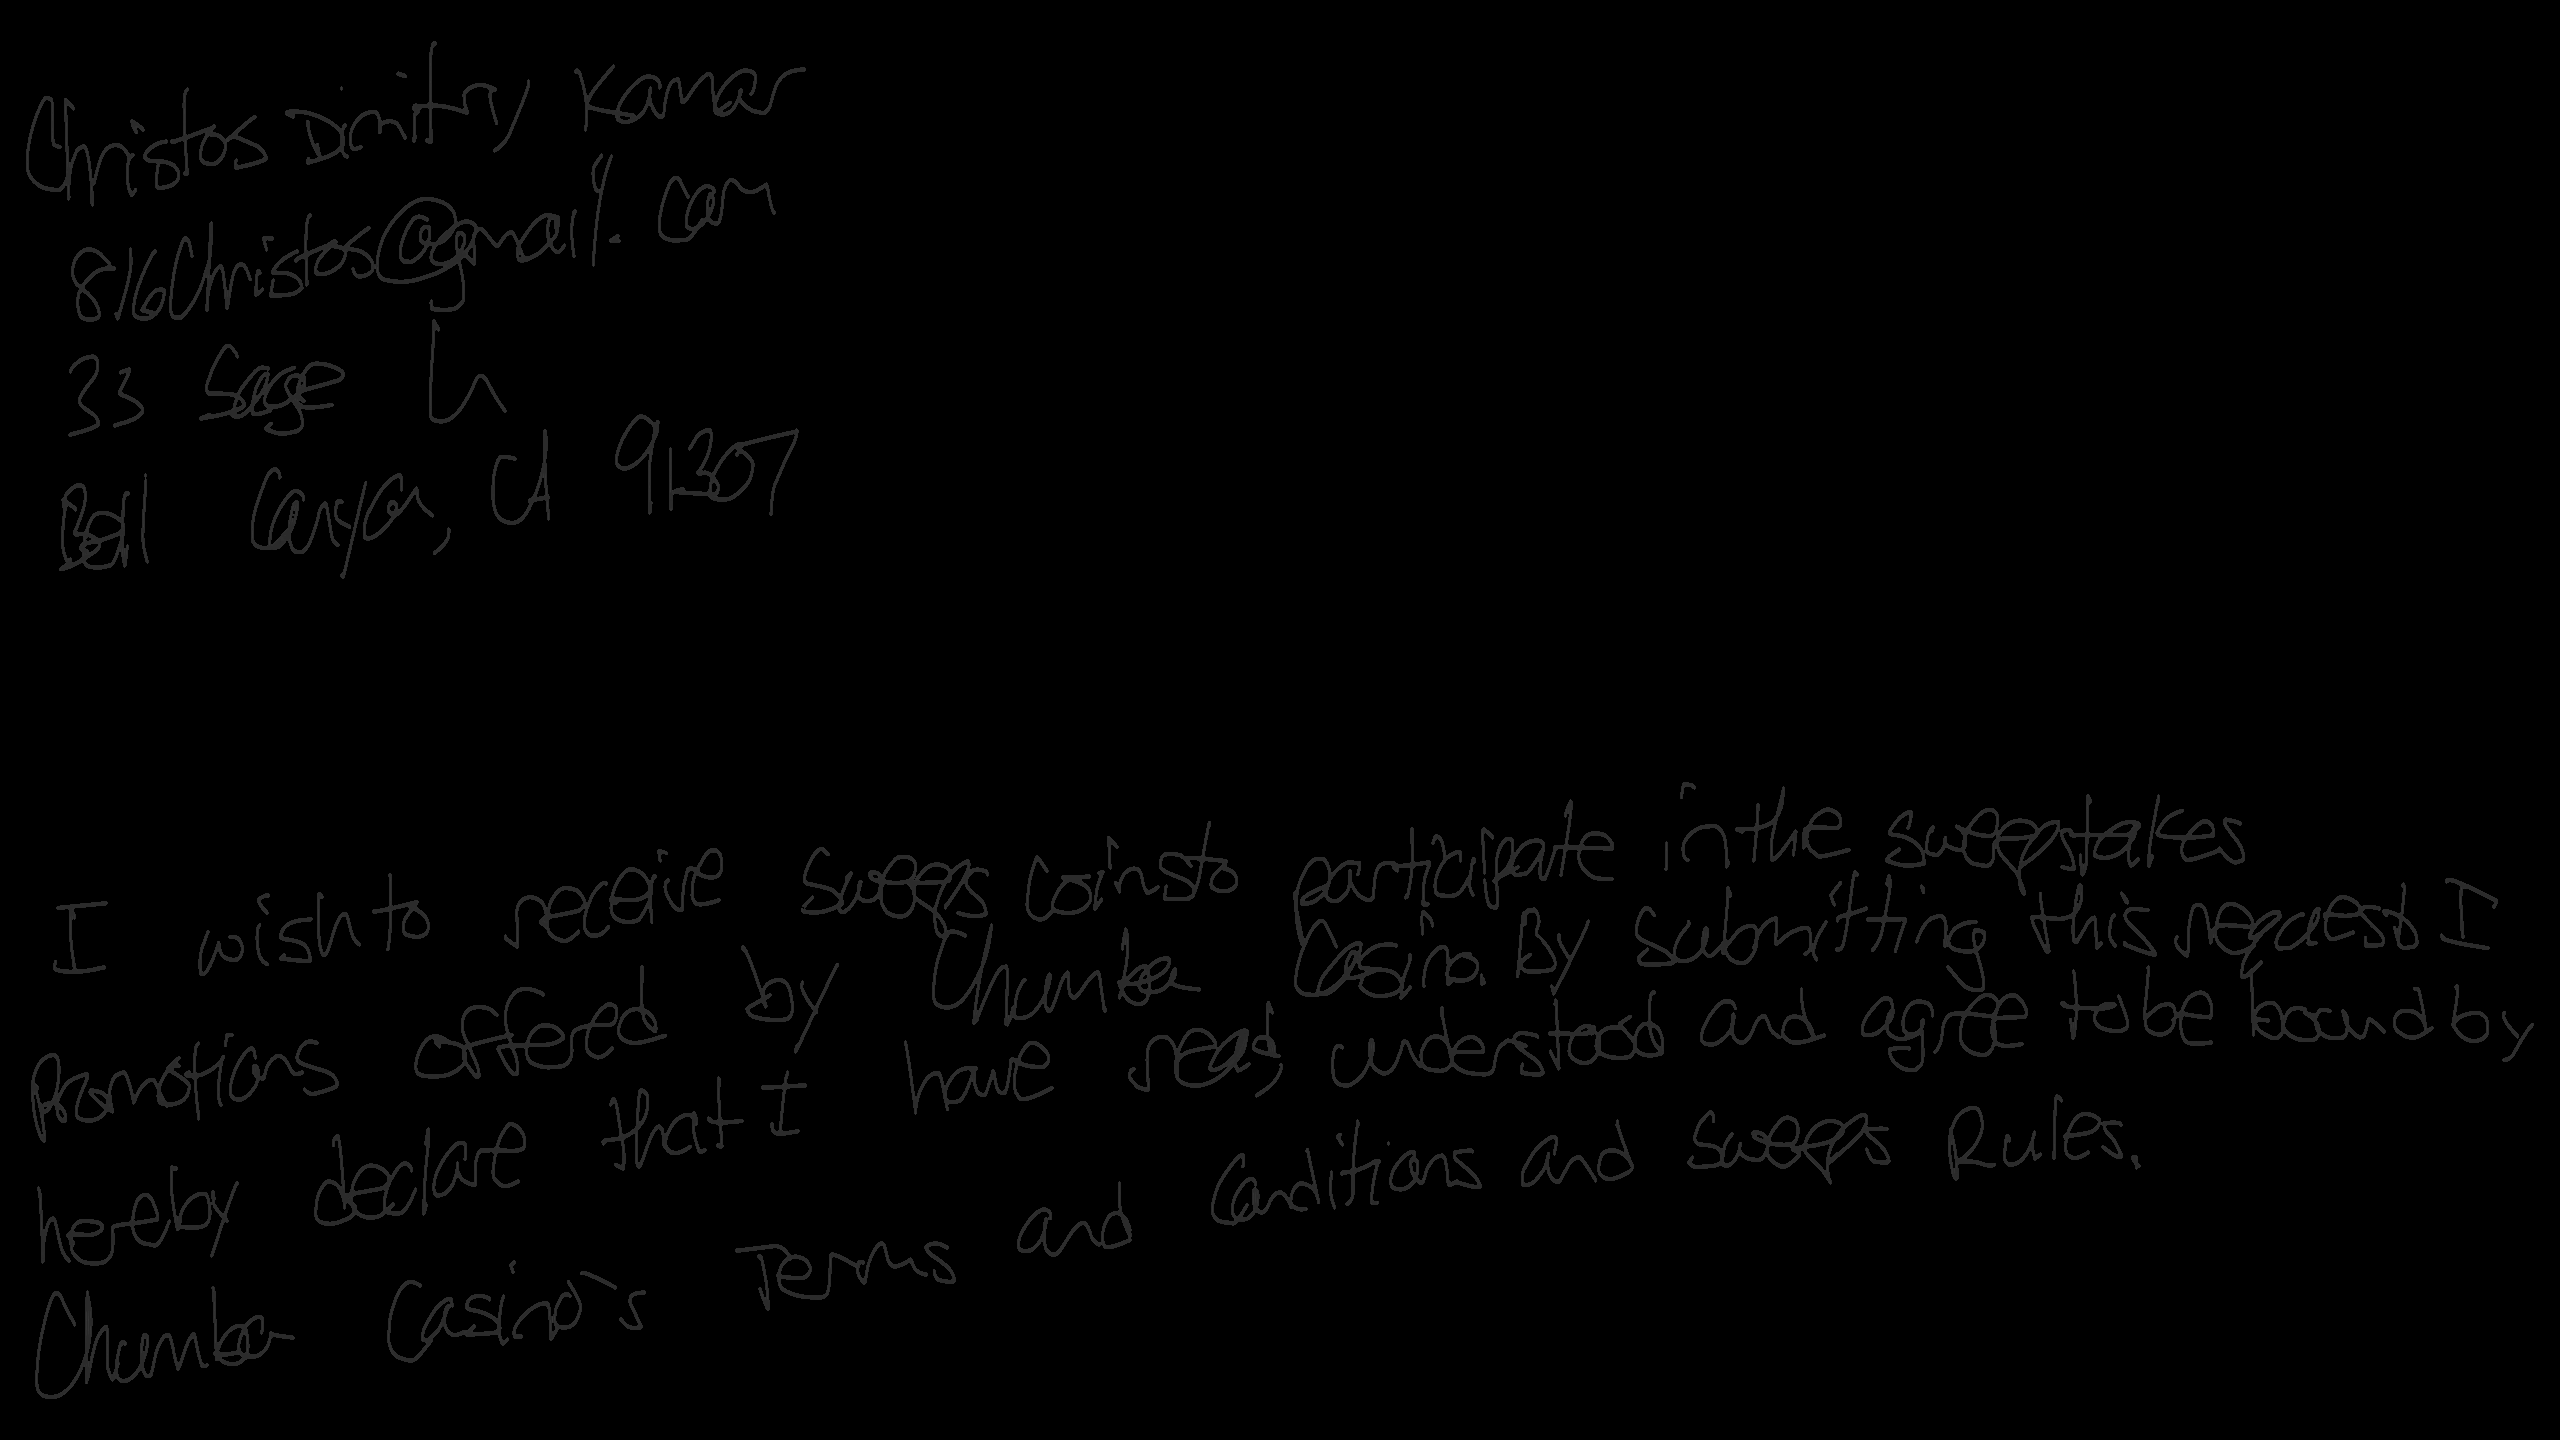 Christos Dimitry Kamar
816Christos@gmail.com
33 Sage Ln
Bell Canyon, CA 91307
I wish to receive sweeps coins to participate in the sweepstakes
promotions offered by Chumba Casino. By submitting this request I
hereby declare that I have read, understood and agree to be bound by
Chumba Casino's Terms and Conditions and Sweeps Rules.